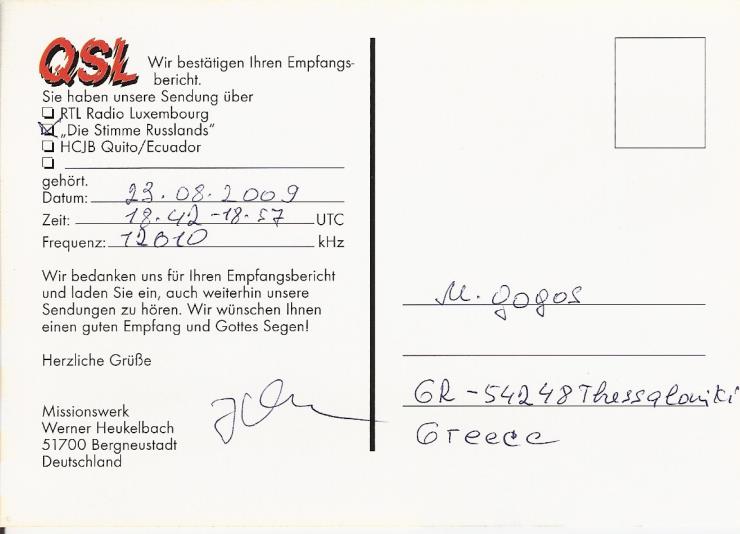 QSL Wir bestätigen Ihren Empfangs-
bericht.
Sie haben unsere Sendung über
RTL Radio Luxembourg
„Die Stimme Russlands“
HCJB Quito/Ecuador
gehört.
Datum: 23.08.2009
Zeit: 18.42-18.57 UTC
Frequenz: 12010 kHz
Wir bedanken uns für Ihren Empfangsbericht
und laden Sie ein, auch weiterhin unsere
Sendungen zu hören. Wir wünschen Ihnen
einen guten Empfang und Gottes Segen!
Herzliche Grüße
Missionswerk
Werner Heukelbach
51700 Bergneustadt
Deutschland
M. Gogos
GR-54248 Thessaloniki
Greece